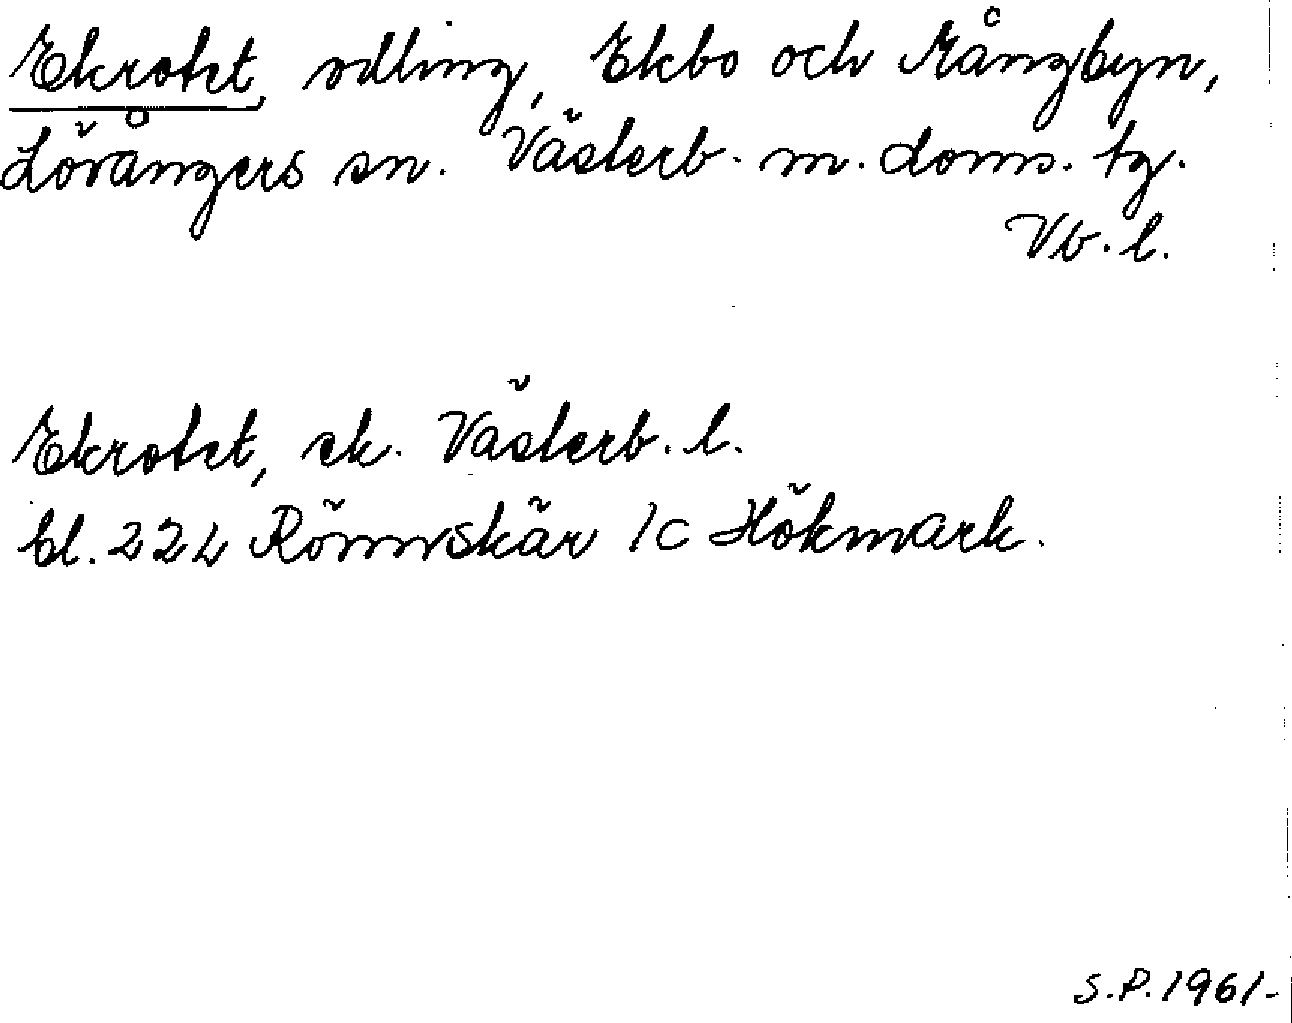 Ekrotet, odling, Ekbo och Mångbyn,
Lövångers sn. Västerb. m. doms. tg.
Vb. l.
Ekrotet, ek. Västerb. l.
bl. 222 Rönnskär 1c Hökmark.
S.P. 1961-